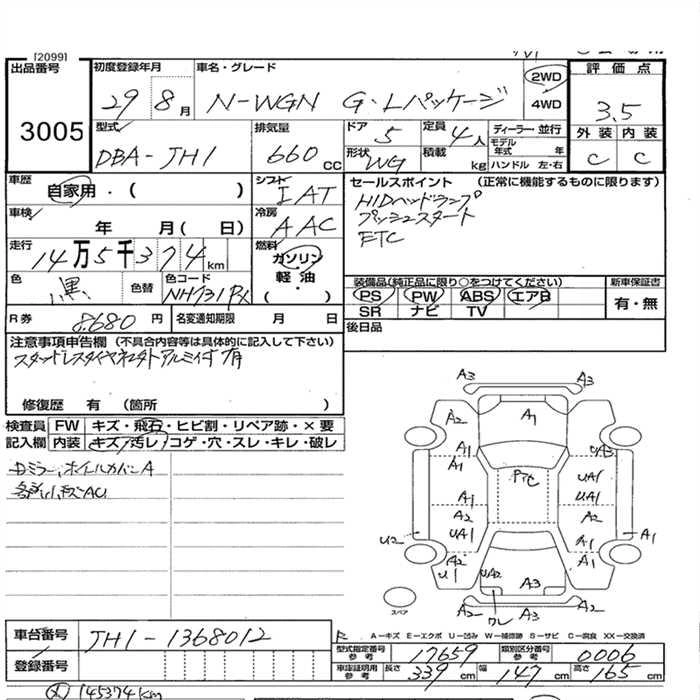 [2099]
出品番号
3005
初度登録年月
29 8月
車名・グレード
N-WGN G・Lパッケージ
2WD
4WD
評価点
3.5
外装 内装
C C
型式
DBA-JH1
排気量
660 CC
ドア
5
定員
4人
形状
WG
積載
kg
ディーラー・並行
モデル年式 年
ハンドル 左・右
車歴
自家用・( )
シフト
IAT
セールスポイント (正常に機能するものに限ります)
HIDヘッドランプ
プッシュスタート
ETC
車検
年 月( 日)
冷房
AAC
走行
14万5千374km
燃料
ガソリン
軽油
( ・ )
色
黒
色替
色コード
NH731PX
装備品(純正品に限り○をつけてください)
新車保証書
PS PW ABS エアB
SR ナビ TV
有・無
R券
8.680円
名変通知期限 月 日
後日品
注意事項申告欄 (不具合内容等は具体的に記入して下さい)
修復歴 有 (箇所 )
検査員
記入欄
FW キズ・飛石・ヒビ割・リペア跡・×要
内装 キズ・汚レ・コゲ・穴・スレ・キレ・破レ
A3 A3
A2 A1
A1
A1 UA1
A1 UA1
A2 A2
UA1 A1
U2 A1
A2 A1
U1 UA2 A3
A2 A3 A2
ワレ
スペア
A−キズ E−エクボ U−凹み W−補修跡 S−サビ C−腐食 XX−交換済
車台番号
JH1-1368012
登録番号
型式指定番号 参考
17659
類別区分番号 参考
0006
車庫証明用 参考
長さ 339cm 幅 147cm 高さ 165cm
145374km